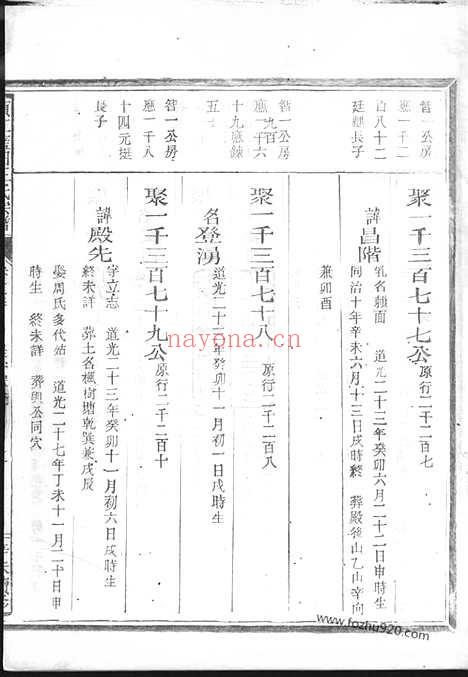 智一公房
應一千二
百八十二
廷 長子
聚一千三百七十七公 原行二千二百七
諱昌階 乳名 面 道光二十三年癸卯六月二十二日申時生
同治十年辛未六月十三日戌時終 葬殿後山乙山辛向
兼卯酉
智一公房
應一千六
百九
十九應鍊
五子
聚一千三百七十八 原行二千二百八
名登湧 道光二十三年癸卯十一月初一日戌時生
智一公房
應一千八
十四元挺
長子
聚一千三百七十九公 原行二千二百十
諱殿先 字立志 道光二十三年癸卯十一月初六日戌時生
終未詳 葬土名楓樹塘乾巽兼戌辰
娶周氏多代姑 道光二十七年丁未十一月二十日申
時生 終未詳 葬與公同穴
nayona.cn
www.fozhu920.com